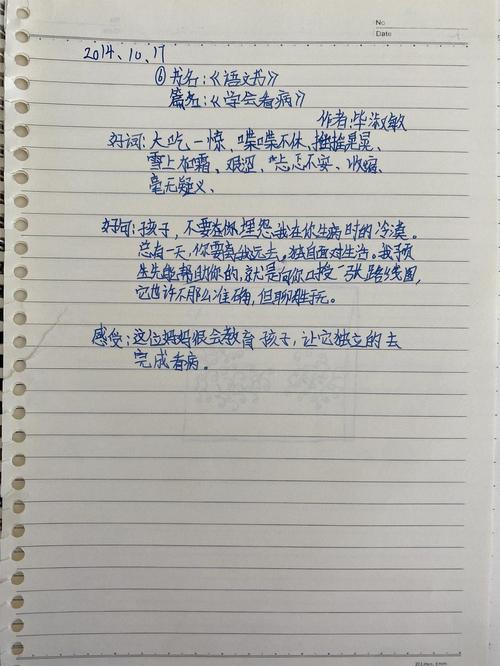 No
Date
2014.10.17
⑥书名:《语文书》
篇名:《学会看病》
作者:毕淑敏
好词:大吃一惊、喋喋不休、摇摇晃晃、
雪上加霜、艰涩、忐忑不安、收缩、
毫无疑义、
好句:孩子,不要在你埋怨我在你生病时的冷漠。
总有一天,你要离我远去,独自面对生活。我预
先能帮助你的,就是向你口授一张路线图,
它也许不那么准确,但聊胜于无。
感受:这位妈妈很会教育孩子,让它独立的去
完成看病。